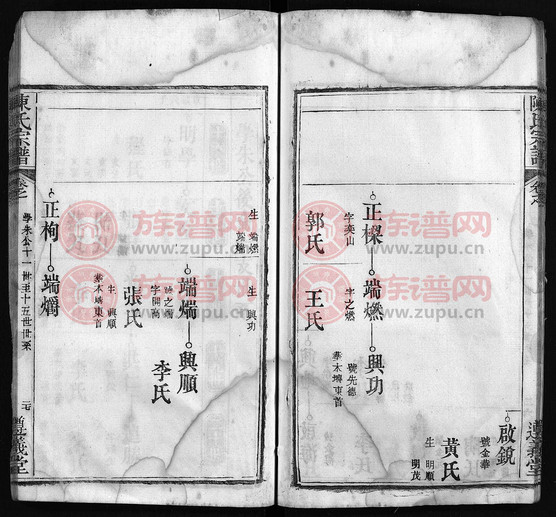 陳氏宗譜
啟銳
號金華
黃氏
生 明順
明茂
正檪
端燃
興功
字奕山
字之燃
號先德
葬木塆東首
郭氏
王氏
生 端燃
端煓
生 興功
端煓
興順
字開萬
張氏
李氏
生 興順
葬木塆東首
正栒
端爝
陳氏宗譜
學朱公十一世至十五世世系
遵義堂
族谱网
www.zupu.cn
族谱网
www.zupu.cn
族谱网
www.zupu.cn
族谱网
www.zupu.cn